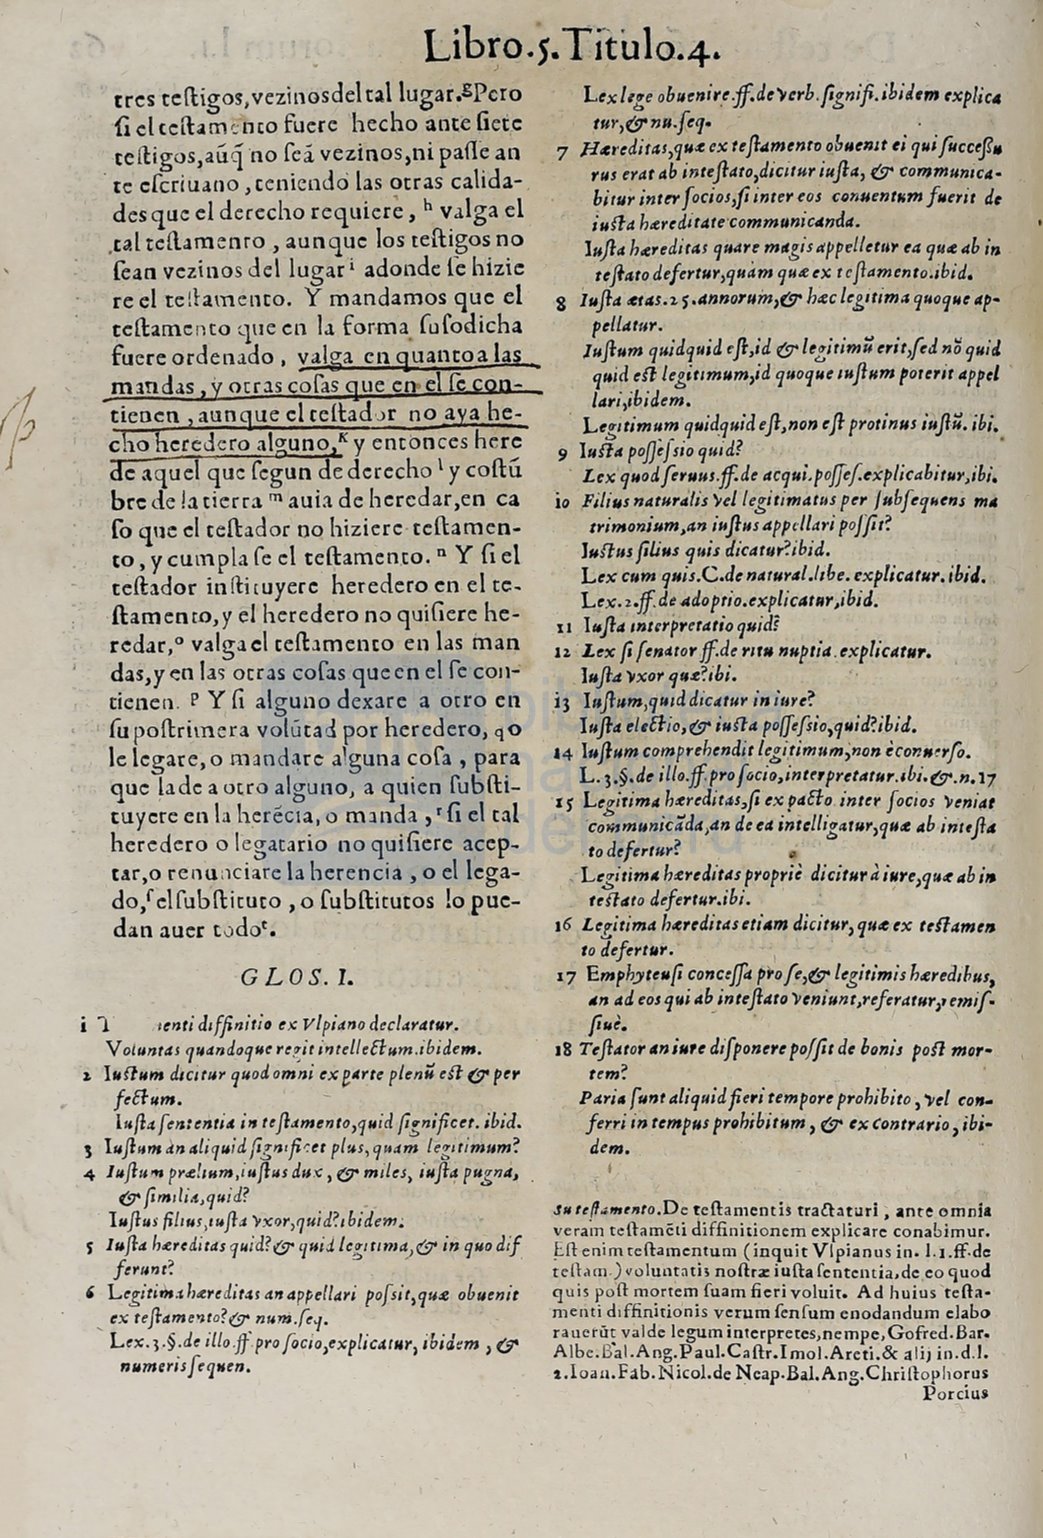 Libro.5.Titulo.4.
tres teſtigos,vezinosdeltal lugar.gPero
ſi el teſtamento fuere hecho ante ſiete
teſtigos,aũq̃ no ſeã vezinos,ni paſſe an
te eſcriuano,teniendo las otras calida-
des que el derecho requiere, h valga el
tal teſtamenro, aunque los teſtigos no
ſean vezinos del lugar i adonde ſe hizie
re el teſtamento. Y mandamos que el
teſtamento que en la forma ſuſodicha
fuere ordenado, valga en quanto a las
mandas, y otras coſas que en el ſe con-
tienen, aunque el teſtador no aya he-
cho heredero alguno,K y entonces here
de aquel que ſegun de derecho l y coſtũ
bre de la tierra m auia de heredar,en ca
ſo que el teſtador no hiziere teſtamen-
to, y cumpla ſe el teſtamento. n Y ſi el
teſtador inſtituyere heredero en el te-
ſtamento,y el heredero no quiſiere he-
redar,o valga el teſtamento en las man
das,y en las otras coſas que en el ſe con-
tienen. p Y ſi alguno dexare a otro en
ſu poſtrimera volũtad por heredero, qo
le legare,o mandare alguna coſa, para
que la de a otro alguno, a quien ſubſti-
tuyere en la herẽcia, o manda,r ſi el tal
heredero o legatario no quiſiere acep-
tar,o renunciare la herencia, o el lega-
do,ſ el ſubſtituto, o ſubſtitutos lo pue-
dan auer todot.
GLOS. I.
1 ienti diffinitio ex Vlpiano declaratur.
Voluntas quandoque regit intellectum.ibidem.
2 Iuſtum dicitur quod omni ex parte plenũ eſt & per
fectum.
Iuſta ſententia in teſtamento,quid ſignificet. ibid.
3 Iuſtum an aliquid ſignificet plus, quam legitimum?
4 Iuſtum prælium,iuſtus dux, & miles, iuſta pugna,
& ſimilia,quid?
Iuſtus filius,iuſta vxor,quid?ibidem.
5 Iuſta hæreditas quid?& quid legitima,& in quo dif
ferunt?
6 Legitima hæreditas an appellari poſsit,quæ obuenit
ex teſtamento?& num.ſeq.
Lex.3.§.de illo.ff.pro ſocio,explicatur, ibidem, &
numeris ſequen.
Lex lege obuenire.ff.de verb.ſignifi.ibidem explica
tur,& nu.ſeq.
7 Hæreditas,quæ ex teſtamento obuenit ei qui ſucceſſu
rus erat ab inteſtato,dicitur iuſta, & communica-
bitur inter ſocios,ſi inter eos conuentum fuerit de
iuſta hæreditate communicanda.
Iuſta hæreditas quare magis appelletur ea quæ ab in
teſtato defertur,quàm quæ ex teſtamento.ibid.
8 Iuſta ætas.25.annorum,& hæc legitima quoque ap-
pellatur.
Iuſtum quidquid eſt,id & legitimũ erit,ſed nõ quid
quid eſt legitimum,id quoque iuſtum poterit appel
lari,ibidem.
Legitimum quidquid eſt,non eſt protinus iuſtũ. ibi.
9 Iuſta poſſeſsio quid?
Lex quod ſeruus.ff.de acqui.poſſeſ.explicabitur,ibi.
10 Filius naturalis vel legitimatus per ſubſequens ma
trimonium,an iuſtus appellari poſſit?
Iuſtus filius quis dicatur?ibid.
Lex cum quis.C.de natural.libe. explicatur. ibid.
Lex.2.ff.de adoptio.explicatur,ibid.
11 Iuſta interpretatio quid?
12 Lex ſi ſenator ff.de ritu nuptia.explicatur.
Iuſta vxor quæ?ibi.
13 Iuſtum,quid dicatur in iure?
Iuſta electio,& iuſta poſſeſsio,quid?ibid.
14 Iuſtum comprehendit legitimum,non è conuerſo.
L.3.§.de illo.ff.pro ſocio,interpretatur.ibi.&.n.17
15 Legitima hæreditas,ſi ex pacto inter ſocios veniat
communicãda,an de ea intelligatur,quæ ab inteſta
to defertur?
Legitima hæreditas propriè dicitur à iure,quæ ab in
teſtato defertur.ibi.
16 Legitima hæreditas etiam dicitur, quæ ex teſtamen
to defertur.
17 Emphyteuſi conceſſa pro ſe,& legitimis hæredibus,
an ad eos qui ab inteſtato veniunt,referatur,remiſ-
ſiuè.
18 Teſtator an iure diſponere poſſit de bonis poſt mor-
tem?
Paria ſunt aliquid fieri tempore prohibito, vel con-
ferri in tempus prohibitum, & ex contrario, ibi-
dem.
Su teſtamento.De teſtamentis tractaturi, ante omnia
veram teſtamẽti diffinitionem explicare conabimur.
Eſt enim teſtamentum (inquit Vlpianus in. l.1.ff.de
teſtam.) voluntatis noſtræ iuſta ſententia,de eo quod
quis poſt mortem ſuam fieri voluit. Ad huius teſta-
menti diffinitionis verum ſenſum enodandum elabo
rauerũt valde legum interpretes,nempe,Gofred.Bar.
Albe.Bal.Ang.Paul.Caſtr.Imol.Areti.& alij in.d.l.
1.Ioan.Fab.Nicol.de Neap.Bal.Ang.Chriſtophorus
Porcius